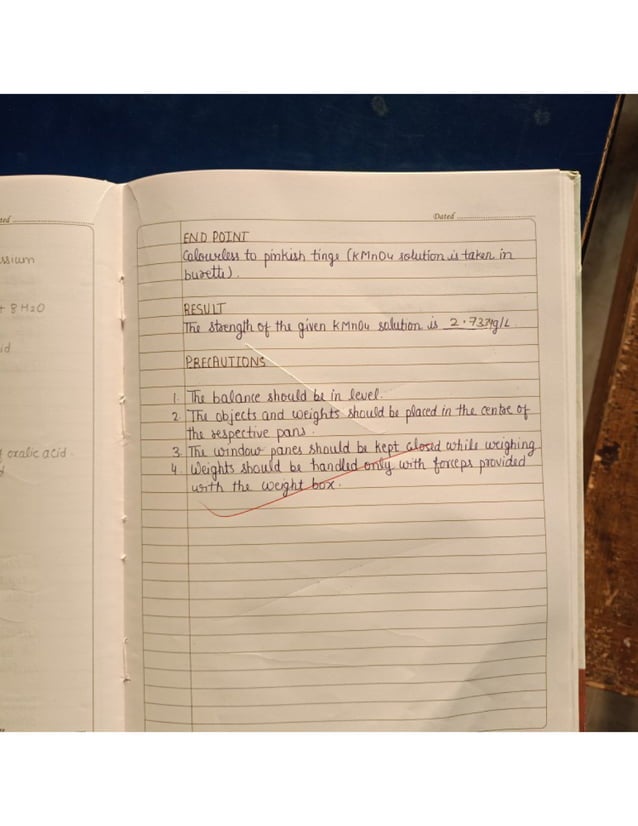 ssium
+ 8H2O
id
oxalic acid.
Dated
END POINT
Colourless to pinkish tinge (KMnO4 solution is taken in
burette).
RESULT
The strength of the given KMnO4 solution is 2.737g/L
PRECAUTIONS
1. The balance should be in level.
2. The objects and weights should be placed in the centre of
the respective pans.
3. The window panes should be kept closed while weighing
4. Weights should be handled only with forceps provided
with the weight box.